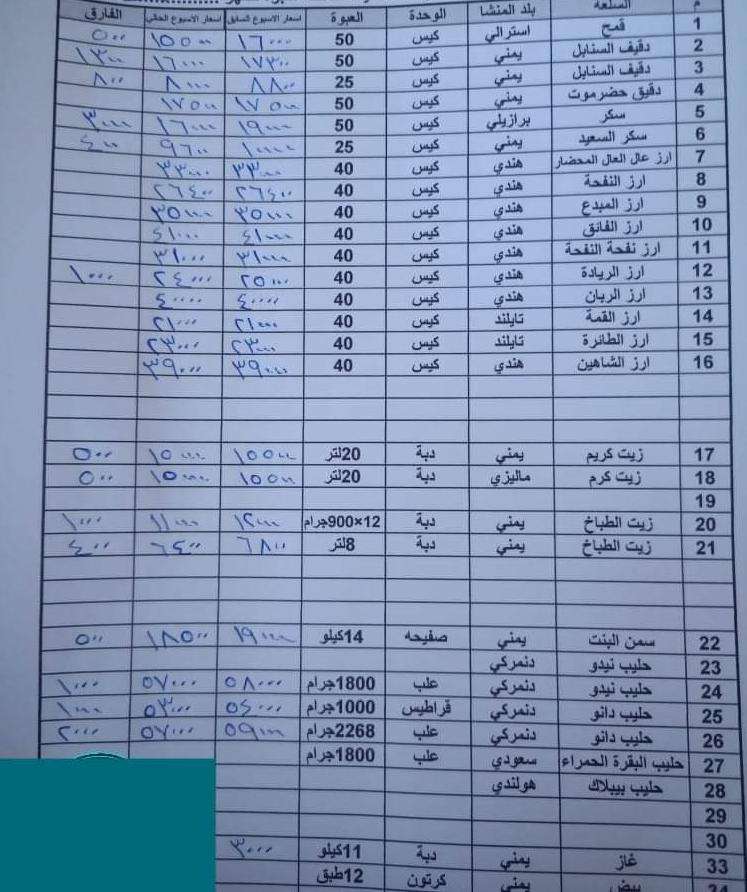 م السلعة بلد المنشا الوحدة العبوة اسعار الاسبوع السابق اسعار الاسبوع الحالي الفارق
1 قمح استرالي كيس 50 ١٦٠٠٠ ١٥٥٠٠ ٥٠٠
2 دقيف السنابل يمني كيس 50 ١٧٣٠٠ ١٦٠٠٠ ١٣٠٠
3 دقيف السنابل يمني كيس 25 ٨٨٠٠ ٨٠٠٠ ٨٠٠
4 دقيق حضرموت يمني كيس 50 ١٧٥٠٠ ١٧٥٠٠
5 سكر برازيلي كيس 50 ١٩٠٠٠ ١٦٠٠٠ ٣٠٠٠
6 سكر السعيد يمني كيس 25 ١٠٠٠٠ ٩٦٠٠ ٤٠٠
7 ارز عال العال المحضار هندي كيس 40 ٣٣٠٠٠ ٣٣٠٠٠
8 ارز النفحة هندي كيس 40 ٢٦٤٠٠ ٢٦٤٠٠
9 ارز المبدع هندي كيس 40 ٣٥٠٠٠ ٣٥٠٠٠
10 ارز الفائق هندي كيس 40 ٤١٠٠٠ ٤١٠٠٠
11 ارز نفحة النفحة هندي كيس 40 ٣١٠٠٠ ٣١٠٠٠
12 ارز الريادة هندي كيس 40 ٢٥٠٠٠ ٢٤٠٠٠ ١٠٠٠
13 ارز الربان هندي كيس 40 ٤٠٠٠٠ ٤٠٠٠٠
14 ارز القمة تايلند كيس 40 ٢١٠٠٠ ٢١٠٠٠
15 ارز الطائرة تايلند كيس 40 ٢٣٠٠٠ ٢٣٠٠٠
16 ارز الشاهين هندي كيس 40 ٣٩٠٠٠ ٣٩٠٠٠
17 زيت كريم يمني دبة 20لتر ١٥٥٠٠ ١٥٠٠٠ ٥٠٠
18 زيت كرم ماليزي دبة 20لتر ١٥٥٠٠ ١٥٠٠٠ ٥٠٠
19
20 زيت الطباخ يمني دبة 12×900جرام ١٢٠٠٠ ١١٠٠٠ ١٠٠٠
21 زيت الطباخ يمني دبة 8لتر ٦٨٠٠ ٦٤٠٠ ٤٠٠
22 سمن البنت يمني صفيحه 14كيلو ١٩٠٠٠ ١٨٥٠٠ ٥٠٠
23 حليب نيدو دنمركي
24 حليب نيدو دنمركي علب 1800جرام ٥٨٠٠٠ ٥٧٠٠٠ ١٠٠٠
25 حليب دانو دنمركي قراطيس 1000جرام ٥٤٠٠٠ ٥٣٠٠٠ ١٠٠٠
26 حليب دانو دنمركي علب 2268جرام ٥٩٠٠٠ ٥٧٠٠٠ ٢٠٠٠
27 حليب البقرة الحمراء سعودي علب 1800جرام
28 حليب بيبلاك هولندي
29
30
33 غاز يمني دبة 11كيلو ٣٠٠٠
34 بيض يمني كرتون 12طبق